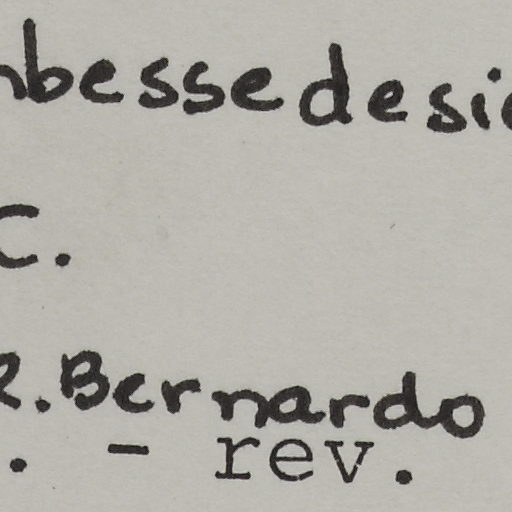 nbesse desie
C.
R. Bernardo
. - rev.